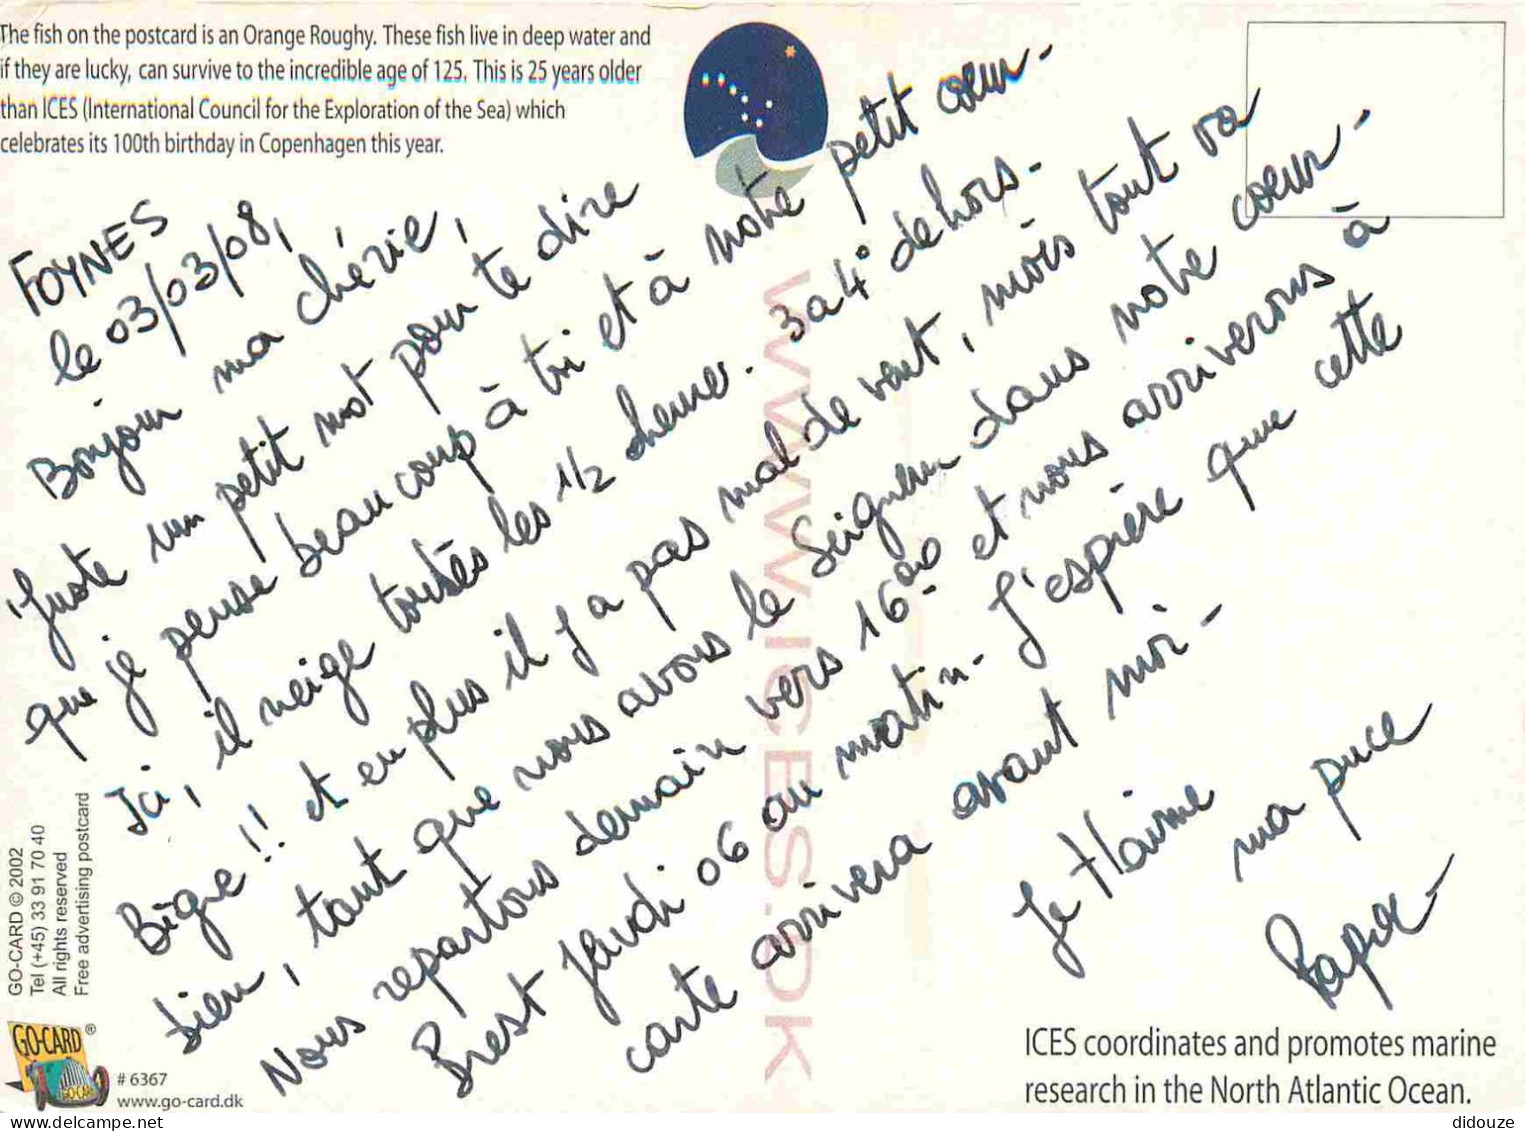 The fish on the postcard is an Orange Roughy. These fish live in deep water and
if they are lucky, can survive to the incredible age of 125. This is 25 years older
than ICES (International Council for the Exploration of the Sea) which
celebrates its 100th birthday in Copenhagen this year.
FOYNES
le 03/03/08,
Bonjour ma chérie,
Juste un petit mot pour te dire
que je pense beaucoup à toi et à notre petit coeur.
Ici, il neige toutes les 1/2 heures. 3 a 4° dehors.
Bigre !! et en plus il y a pas mal de vent, mais tout va
bien, tant que nous avons le Seigneur dans notre coeur.
Nous repartons demain vers 16.00 et nous arriverons à
Brest Jeudi 06 au matin. J'espère que cette
carte arrivera avant moi.
Je t'aime
ma puce
WWW.ICES.DK
GO-CARD © 2002
Tel (+45) 33 91 70 40
All rights reserved
Free advertising postcard
GO-CARD ®
GO-CARD
# 6367
www.go-card.dk
ICES coordinates and promotes marine
research in the North Atlantic Ocean.
didouze